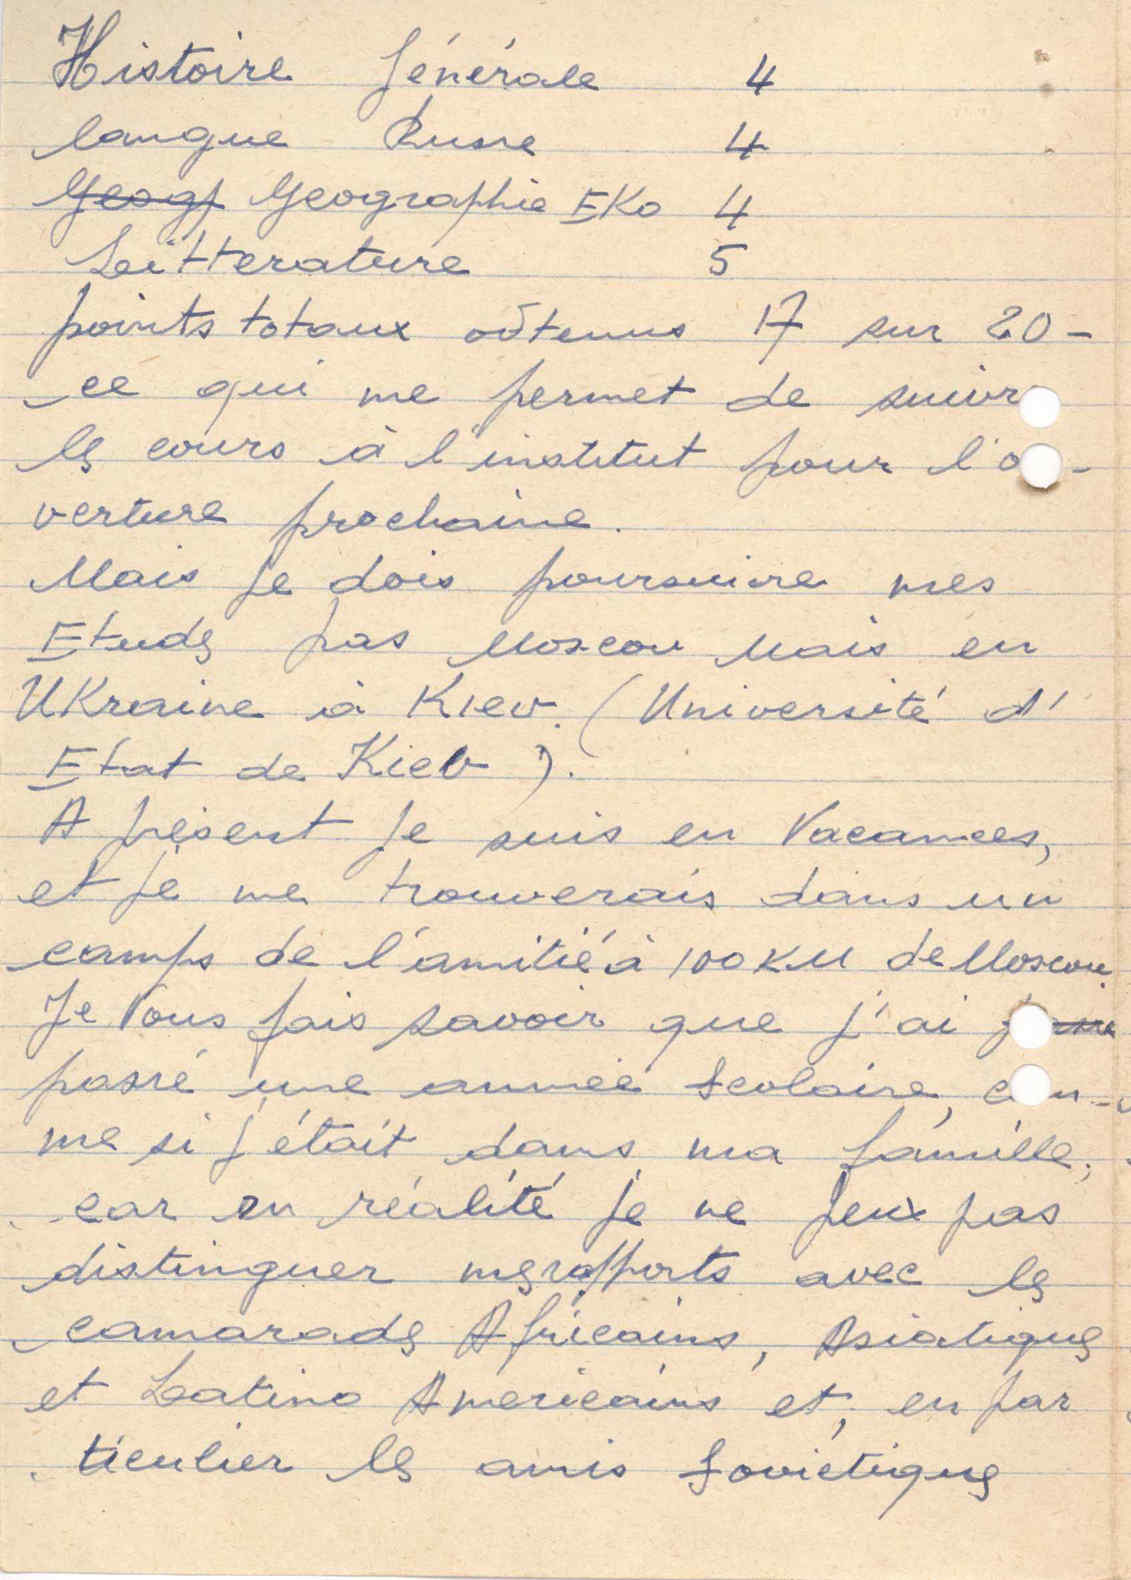 Histoire Générale 4
langue Russe 4
Geogf Geographie EKo 4
Leitterature 5
points totaux obtenus 17 sur 20 -
ce qui me permet de suivr
les cours à l'institut pour l'o -
verture prochaine.
Mais je dois poursuivre mes
Etudes pas Moscou Mais en
UKraine à Kiev. (Université d'
Etat de Kiev ).
A présent je suis en Vacances,
et je me trouverais dans un
camps de l'amitié à 100 KM de Moscou
Je Vous fais savoir que j'ai
passé une année Scolaire, com-
me si j'était dans ma famille,
car en réalité je ne peux pas
distinguer mes rapports avec les
camarades Africains, Asiatiques
et Latino Americains et, en par
ticulier les amis Soviétiques